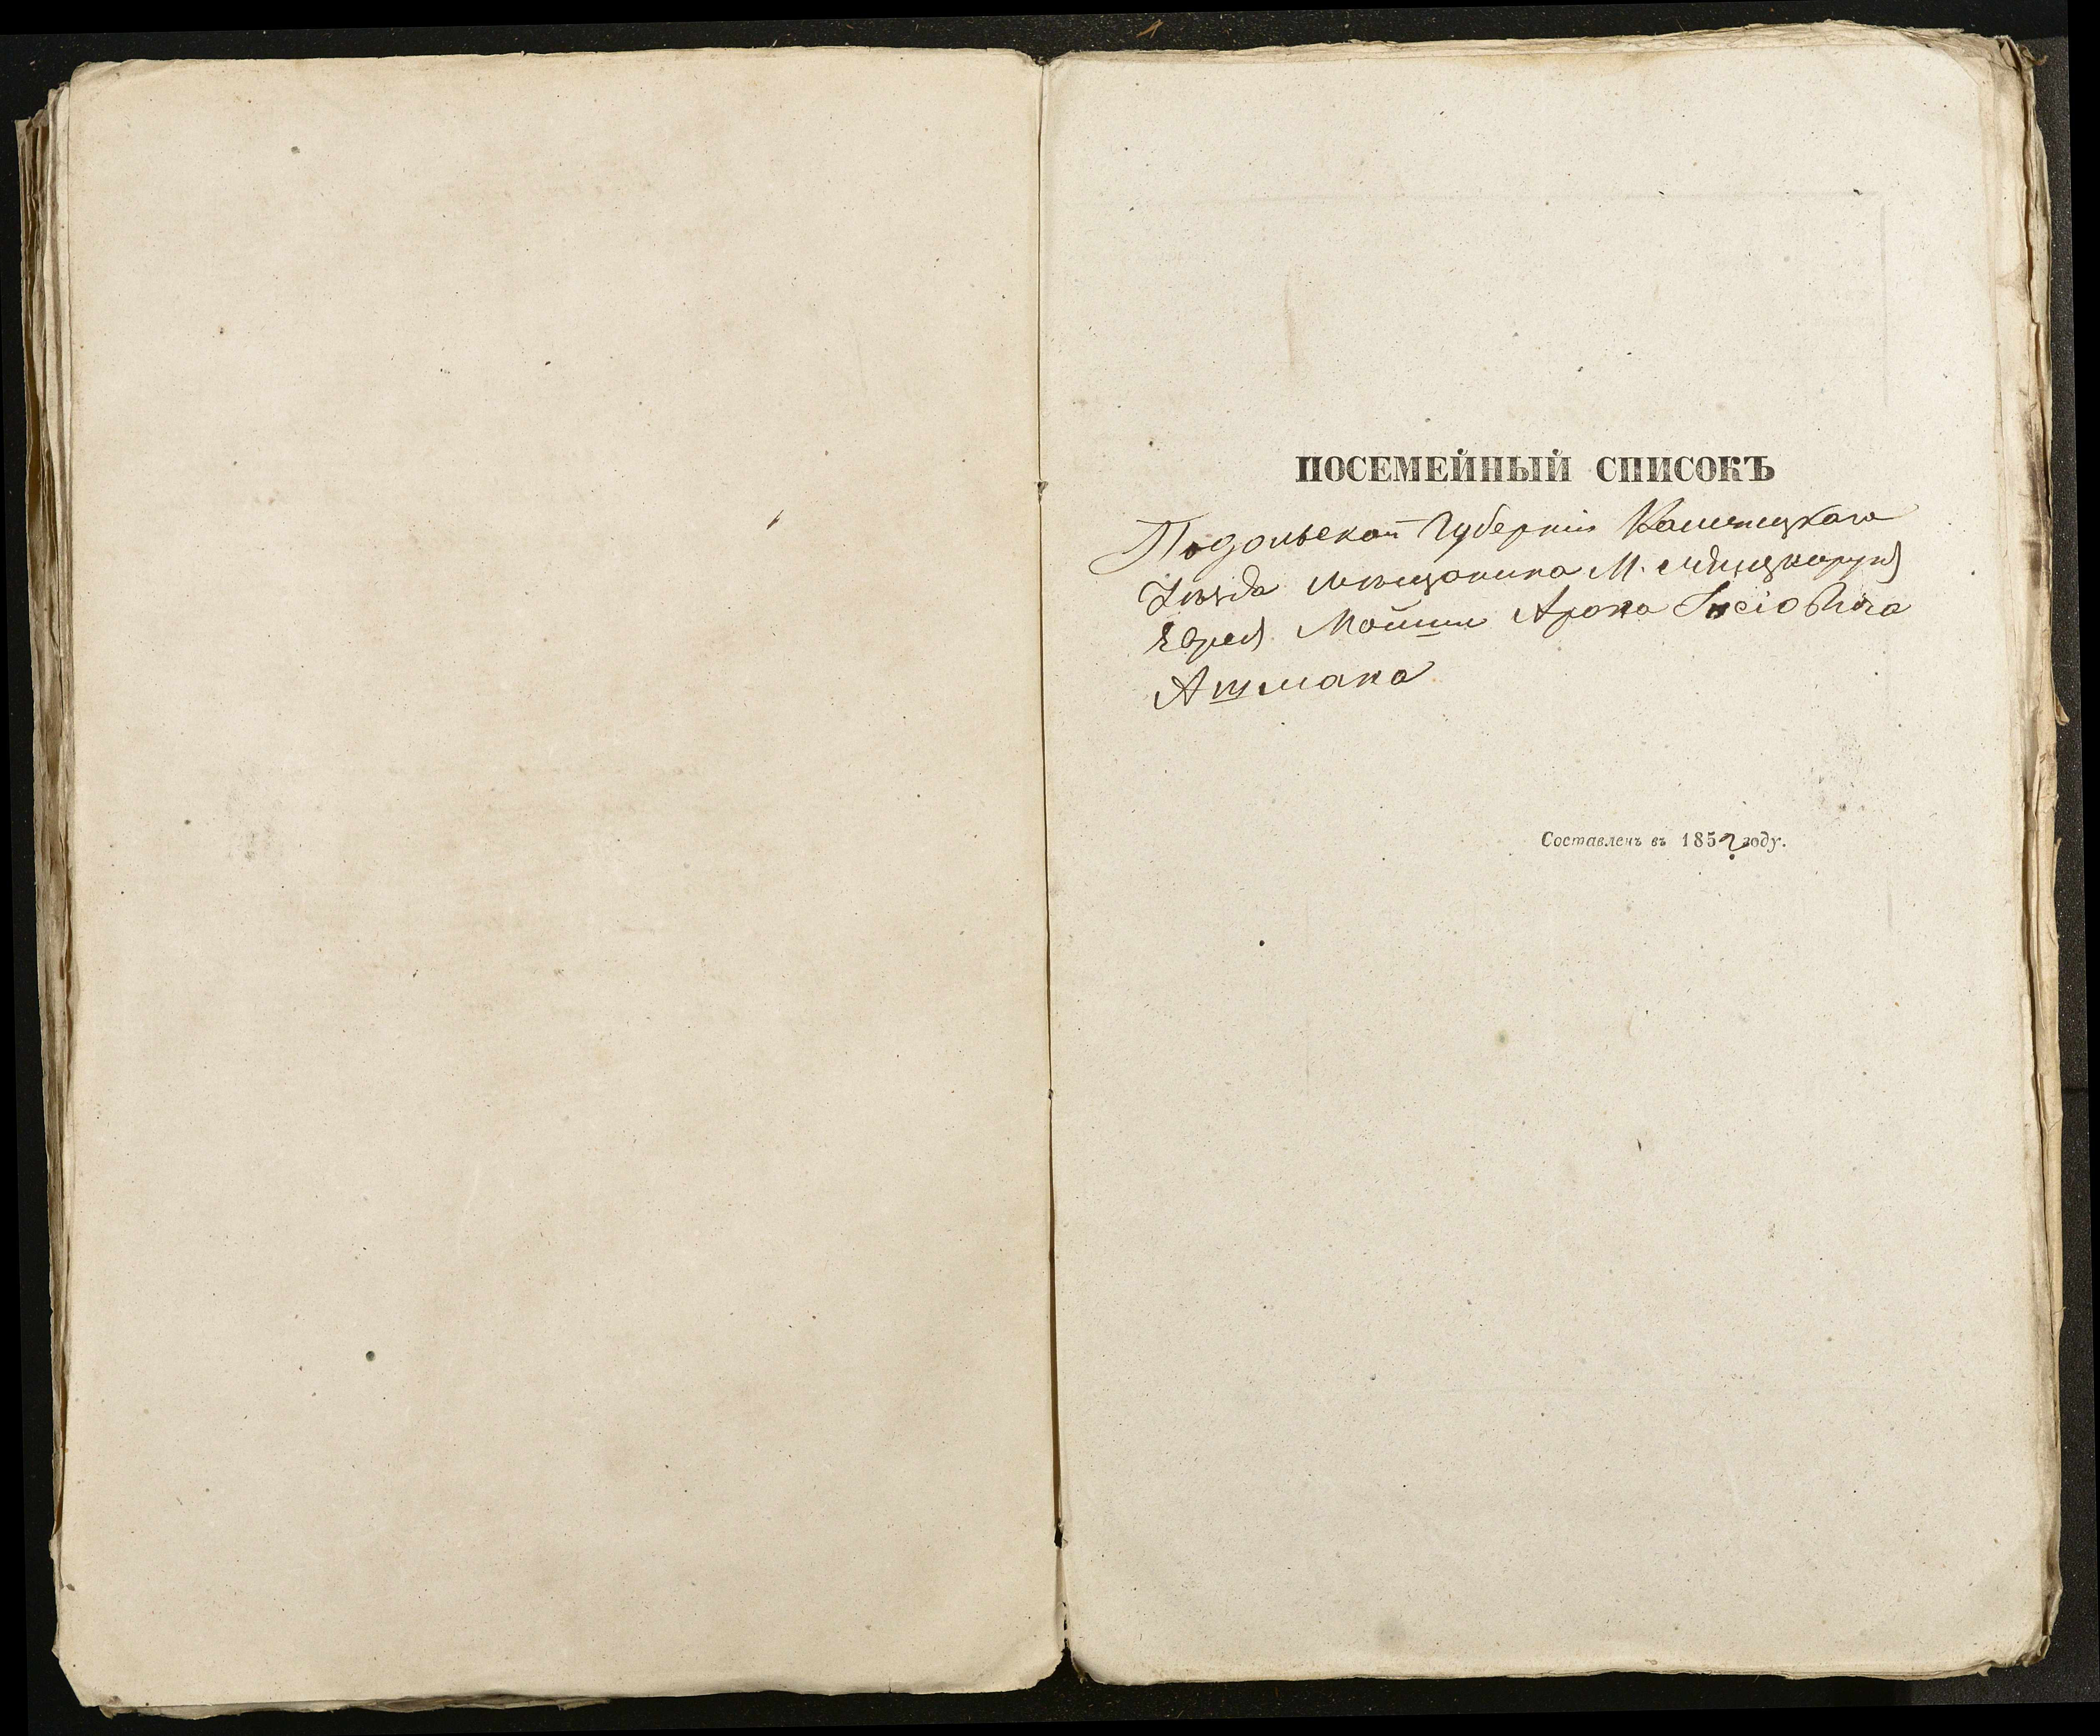 ПОСЕМЕЙНЫЙ СПИСОКЪ
Подольской Губерніи Каменецкаго
Уѣзда мѣщанина М.
Еврея Мошки Арона Іосіовича
Ашмана
Составленъ въ 1852 году.